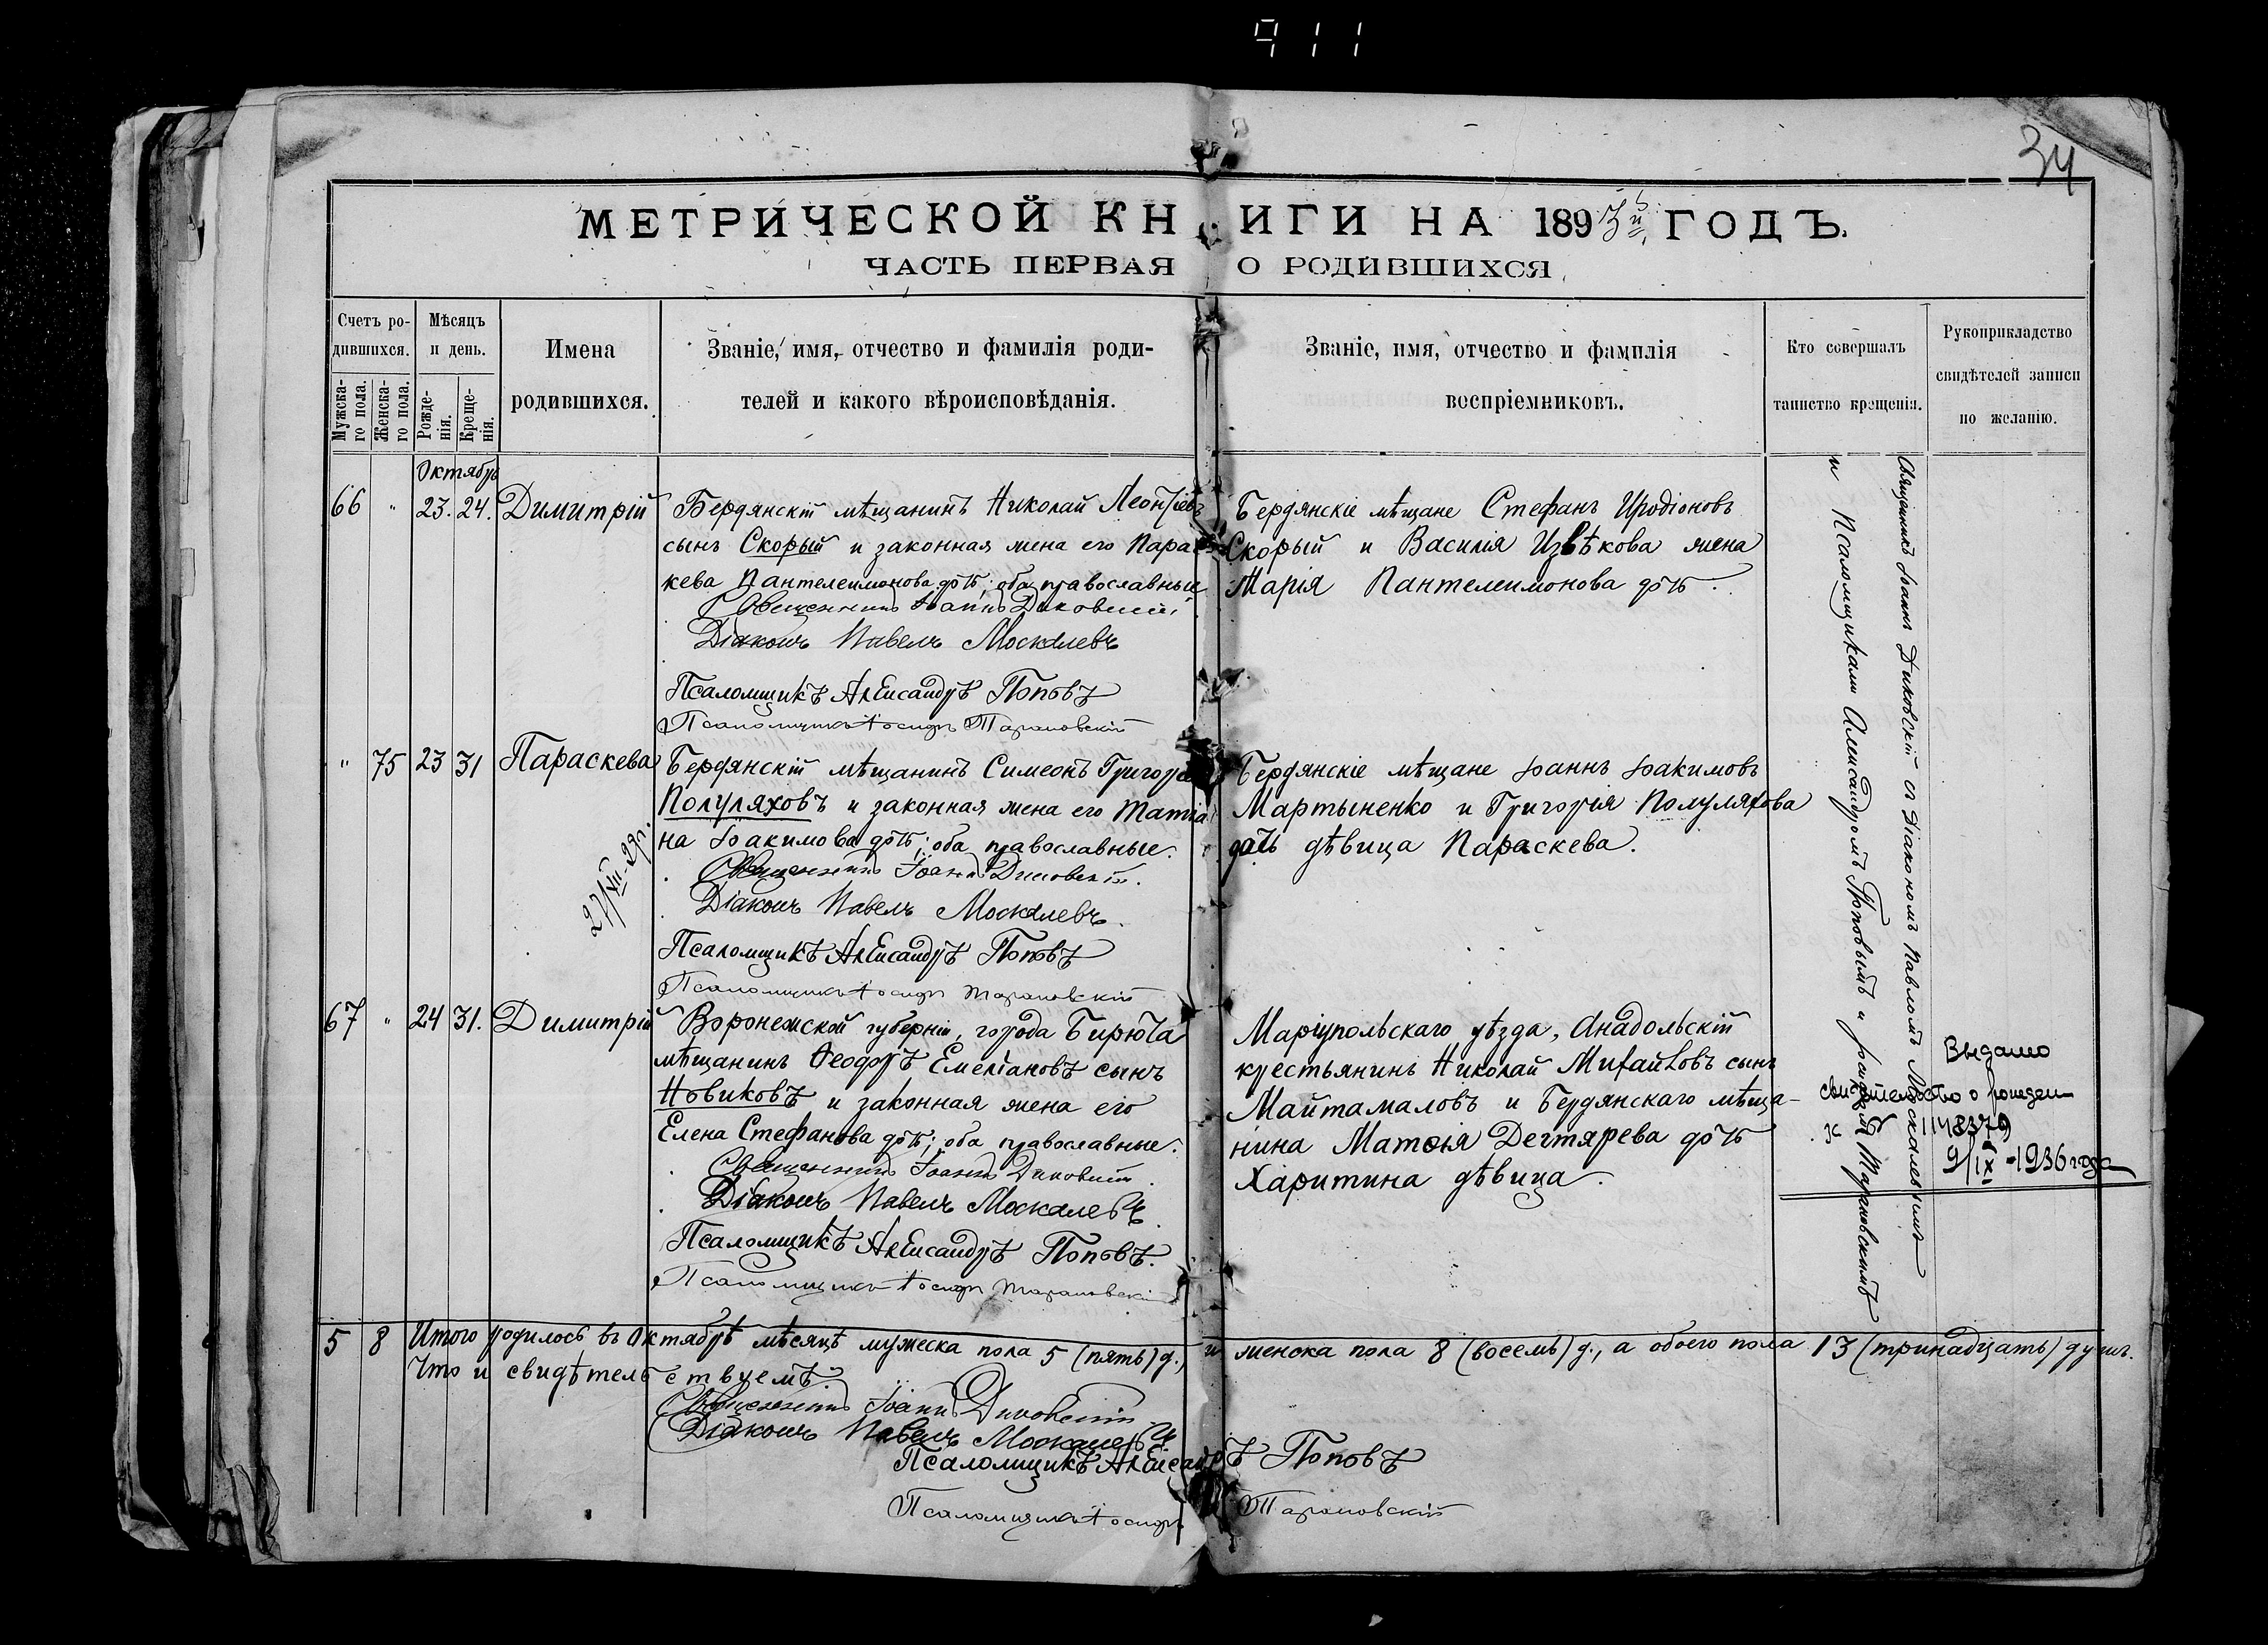 911
34
МЕТРИЧЕСКОЙ КНИГИ НА 1893й ГОДЪ.
ЧАСТЬ ПЕРВАЯ О РОДИВШИХСЯ.
Счетъ родившихся.
Мужскаго пола.
Женскаго пола.
Мѣсяцъ и день.
Рожденія.
Крещенія.
Имена
родившихся.
Званіе, имя, отчество и фамилія роди-
телей и какого вѣроисповѣданія.
Званіе, имя, отчество и фамилія
воспріемниковъ.
Кто совершалъ
таинство крещенія.
Рукоприкладство
свидѣтелей записи
по желанію.
Октябрь
66 " 23. 24. Димитрій
Бердянскій мѣщанинъ Николай Леонтіевъ
сынъ Скорый и законная жена его Парас-
кева Пантелеимонова дочь; оба православные
Священникъ Іоаннъ Диковскій
Діаконъ Павелъ Москалевъ
Псаломщикъ Александръ Поповъ
Псаломщикъ Іосифъ Тарановскій
Бердянскіе мѣщане Стефанъ Иродіоновъ
Скорый и Василія Извѣкова жена
Марія Пантелеимонова дочь.
" 75 23 31 Параскева
Бердянскій мѣщанинъ Симеонъ Григорьевъ
Полуляховъ и законная жена его Татіа-
на Іоакимова дочь; оба православные.
Священникъ Іоаннъ Диковскій.
Діаконъ Павелъ Москалевъ
Псаломщикъ Александръ Поповъ
Псаломщикъ Іосифъ Тарановскій
27/VII-29г.
Бердянскіе мѣщане Іоаннъ Іоакимовъ
Мартыненко и Григорія Полуляхова
дочь дѣвица Параскева.
67 " 24 31. Димитрій
Воронежской губерніи, города Бирюча
мѣщанинъ Ѳеодоръ Емеліановъ сынъ
Новиковъ и законная жена его
Елена Стефанова дочь; оба православные.
Священникъ Іоаннъ Диковскій
Діаконъ Павелъ Москалевъ
Псаломщикъ Александръ Поповъ.
Псаломщикъ Іосифъ Тарановскій
Маріупольскаго уѣзда, Анадольскій
крестьянинъ Николай Михайловъ сынъ
Майтамаловъ и Бердянскаго мѣща-
нина Матѳія Дегтярева дочь
Харитина дѣвица.
Священникъ Іоаннъ Диковскій съ Діакономъ Павломъ Москалевымъ
и Псаломщиками Александромъ Поповымъ и Іосифомъ Тарановскимъ
Выдано
свидетельство о рожден
1148379
9/IX-1936 года
5 8 Итого родилось въ Октябрѣ мѣсяцѣ мужеска пола 5 (пять) д., и женска пола 8 (восемь) д., а обоего пола 13 (тринадцать) душъ.
Что и свидѣтельствуемъ.
Священникъ Іоаннъ Диковскій
Діаконъ Павелъ Москалевъ
Псаломщикъ Александръ Поповъ
Псаломщикъ Іосифъ Тарановскій